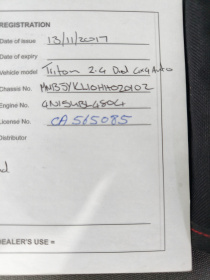 REGISTRATION
Date of issue 13/11/2017
Date of expiry
Vehicle model Triton 2.4 Dsl 4x4 Auto
Chassis No.
Engine No.
License No. CA 565085
Distributor
DEALER'S USE